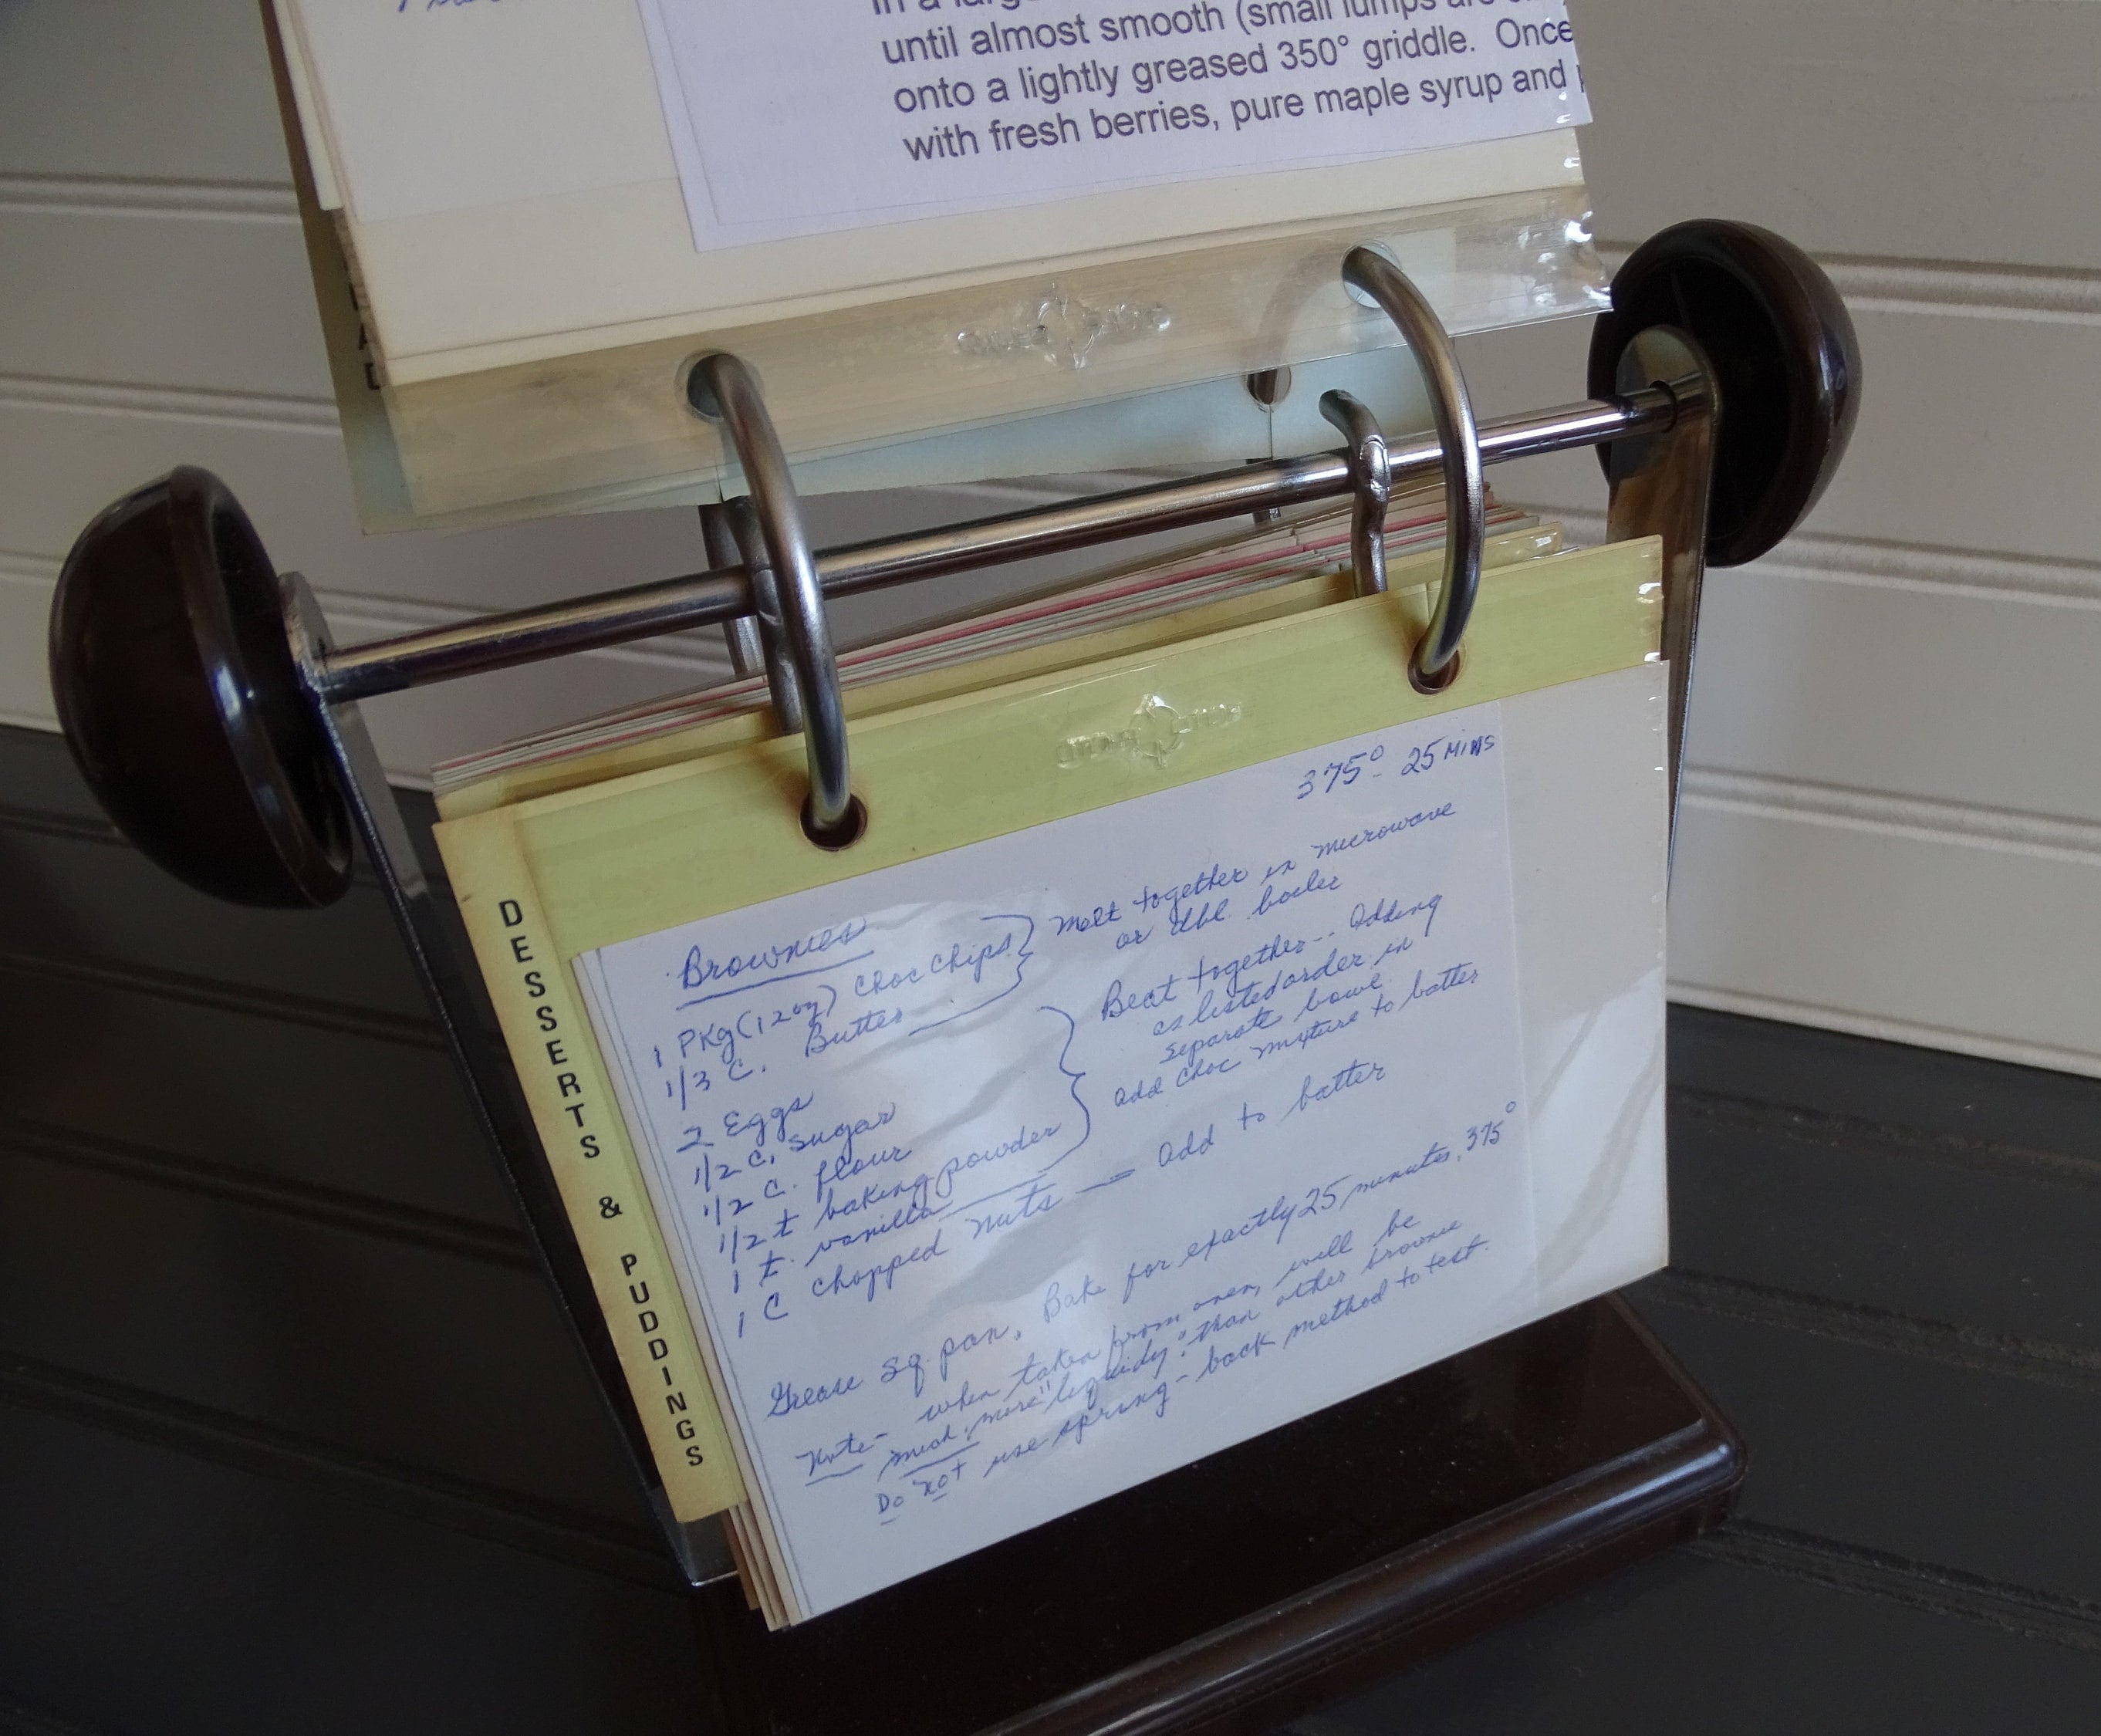 In a large
until almost smooth (small lumps are
onto a lightly greased 350° griddle. Once
with fresh berries, pure maple syrup and
DESSERTS & PUDDINGS
375° - 25 MINS
Brownies
1 PKg (12oz) Choc Chips
1/3 C. Butter
Melt together in microwave
or dbl. boiler
2 Eggs
1/2 C. Sugar
1/2 C. flour
1/2 t baking powder
1 t. vanilla
Beat together - adding
as listed order in
separate bowl
add choc mixture to batter
1 C chopped nuts — add to batter
Grease sq. pan. Bake for exactly 25 minutes, 375°
Note - when taken from oven, will be
much more "liquidy" than other brownie
Do not use spring-back method to test.